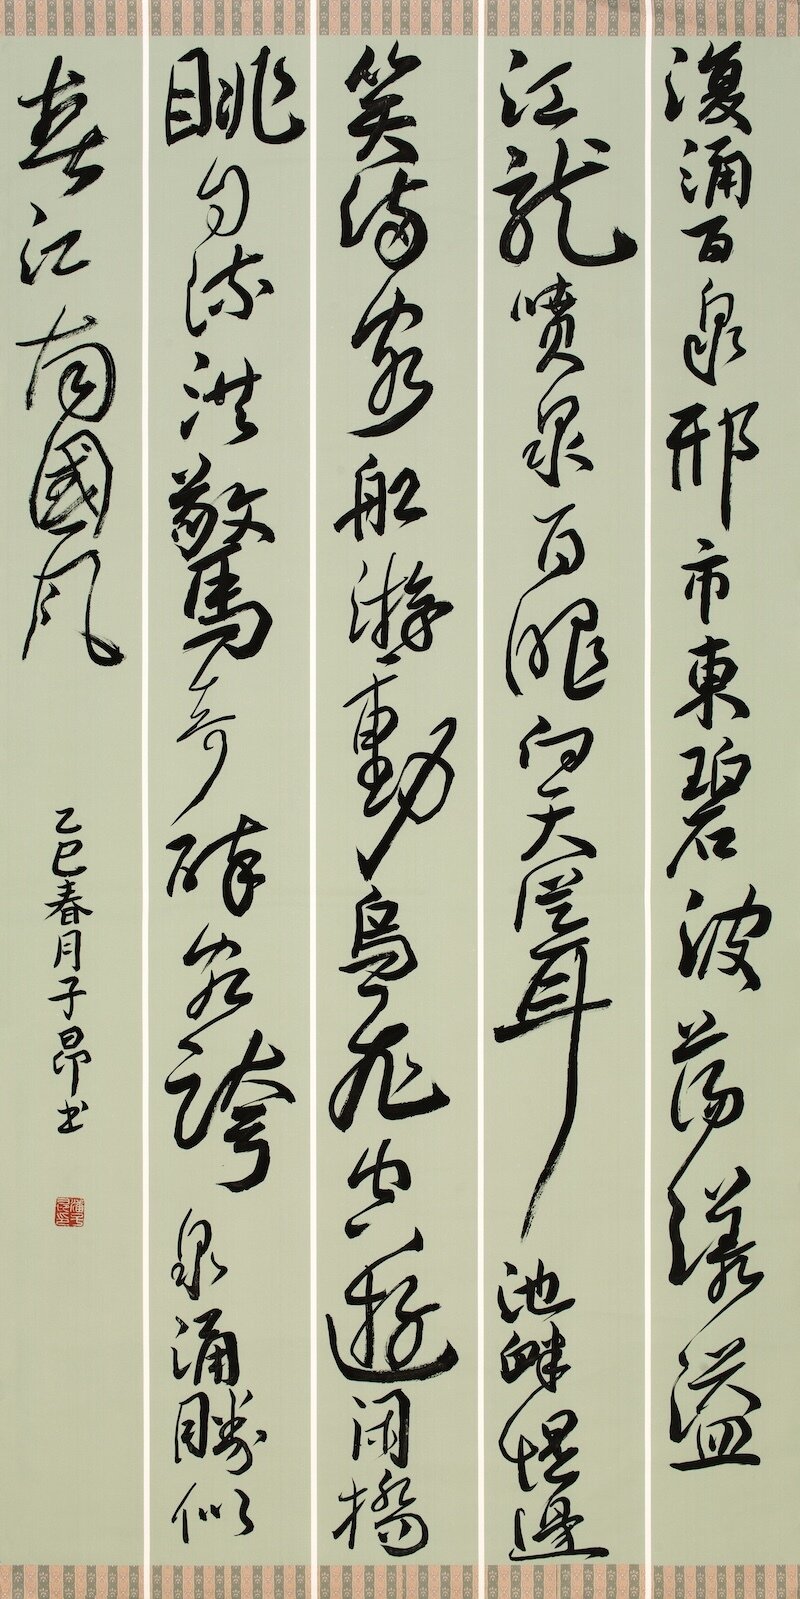 復涌百泉邢市東碧波蕩漾溢
江龍噴泉百眼向天聳池畔堤邊
笑滿容船游動鳥飛空遊閑橋
眺自流洪驚奇醉客誇泉涌勝似
春江南國風
乙巳春月子昂书